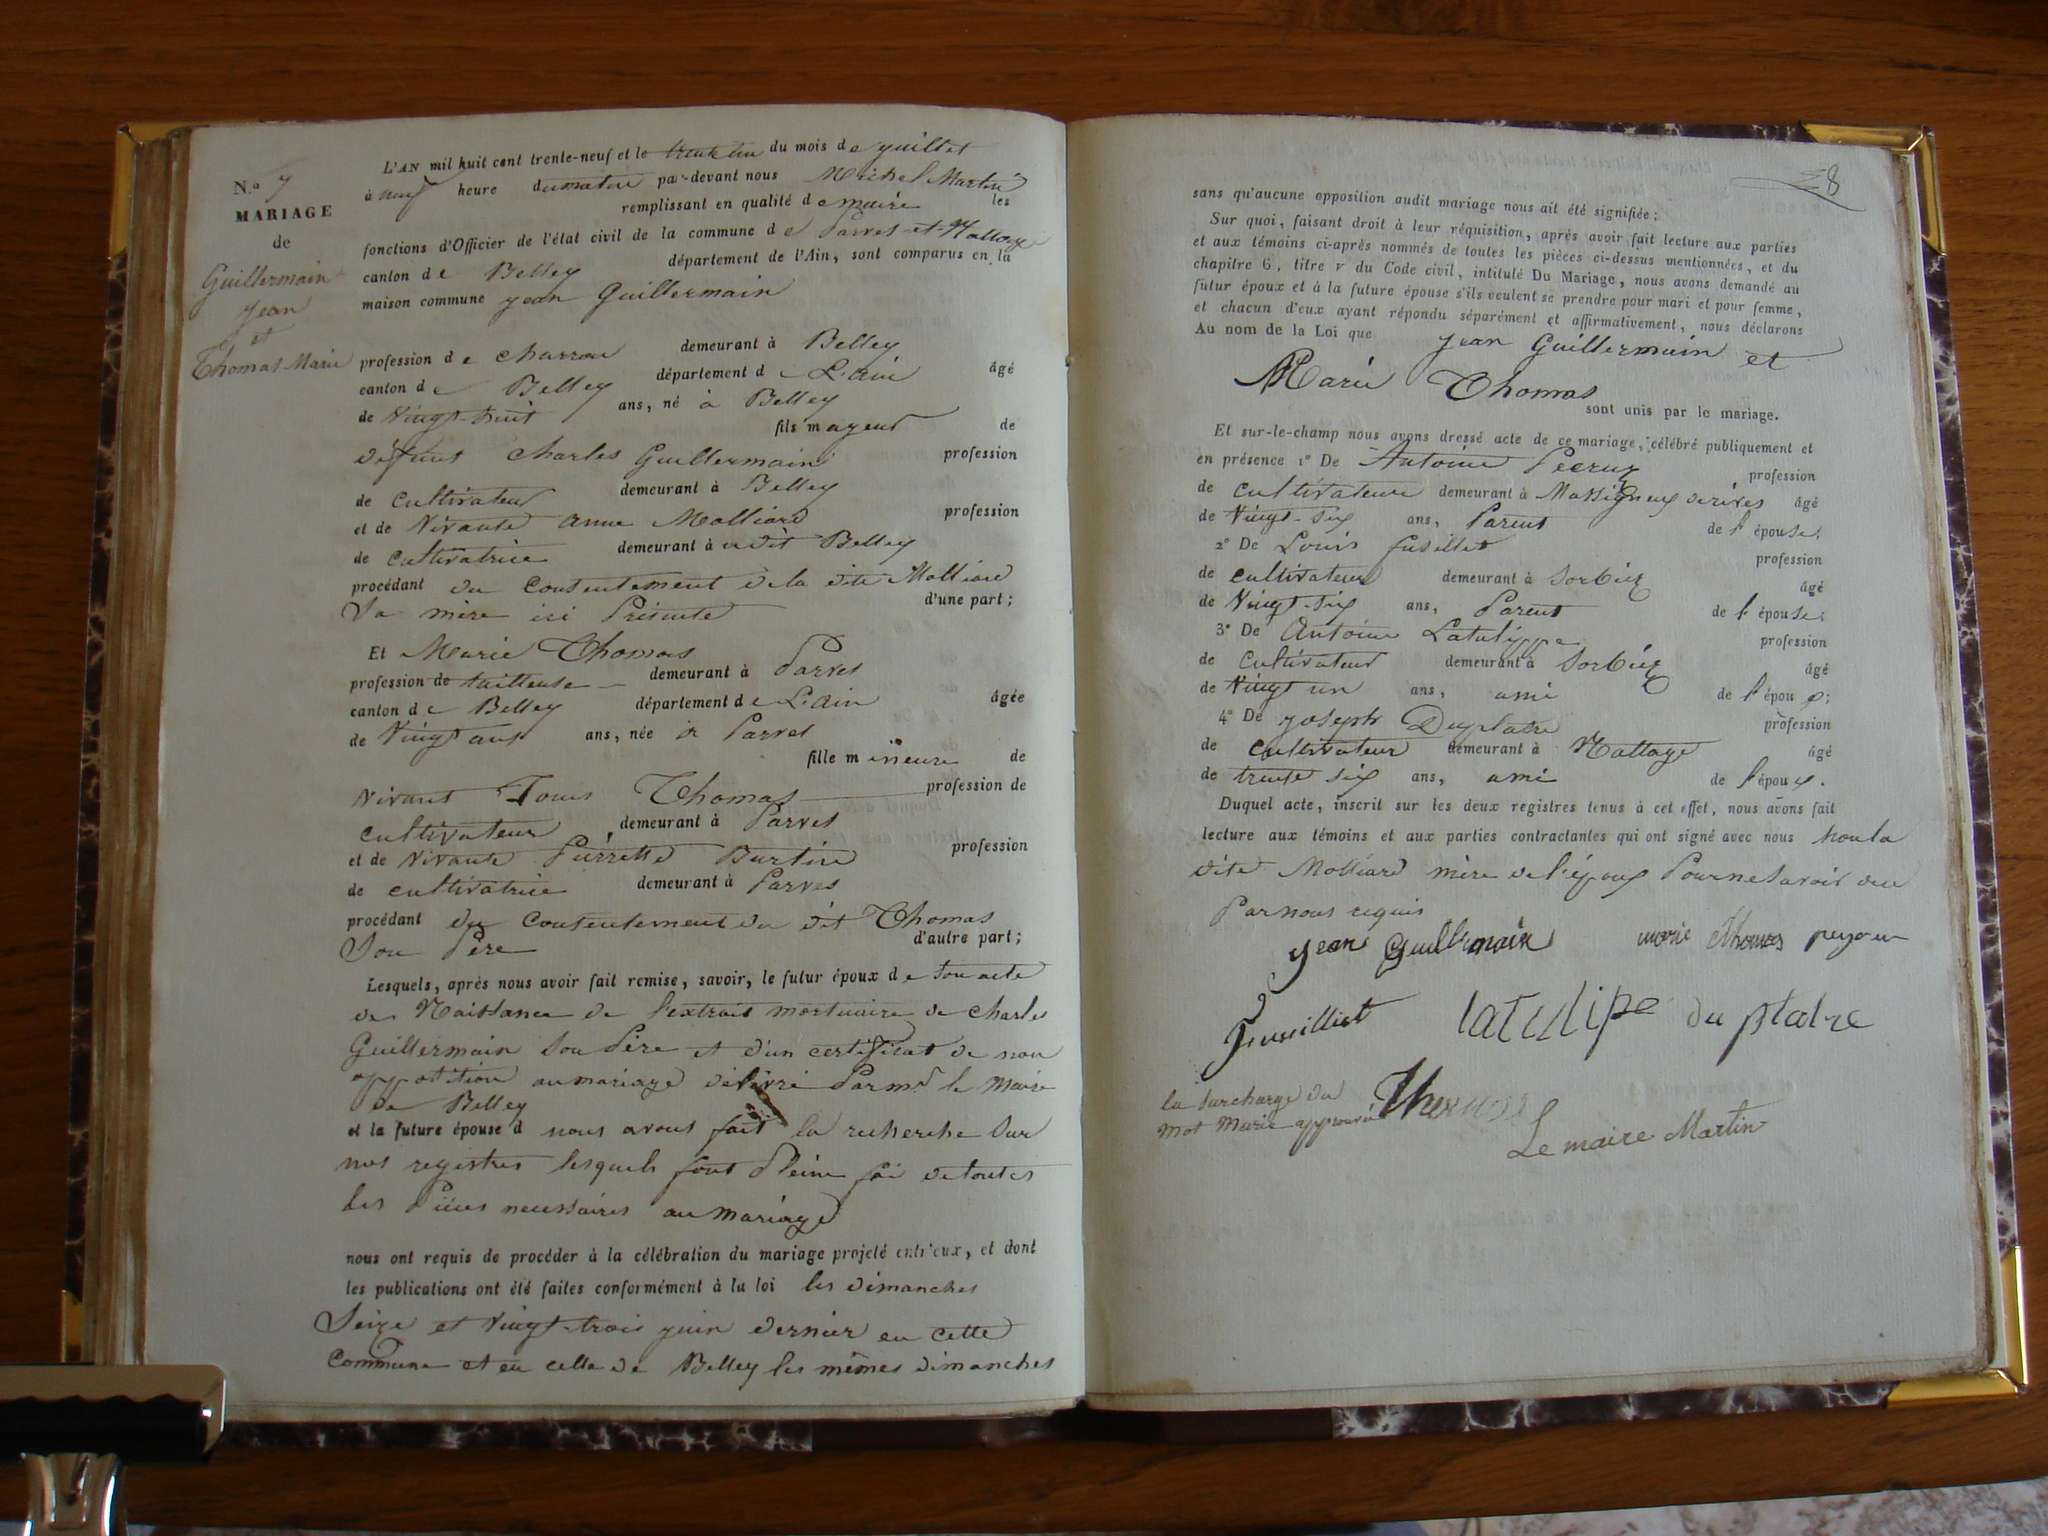 L'AN mil huit cent trente-neuf et le trente un du mois de juillet
à neuf heure du matin par-devant nous Michel Martin
remplissant en qualité de maire les
fonctions d'Officier de l'état civil de la commune de Parves et Nattage
canton de Belley département de l'Ain, sont comparus en la
maison commune jean Guillermain
N.º 7
MARIAGE
de
Guillermain
jean
et
Thomas Marie
profession de charron demeurant à Belley
canton de Belley département de L'ain âgé
de Vingt-huit ans, né à Belley
fils mayeur de
défunt Charles Guillermain profession
de cultivateur demeurant à Belley
et de Vivante anne Molliard profession
de cultivatrice demeurant à udit Belley
procédant du Consentement de la dite Molliard
Sa mère ici Présente d'une part;
Et Marie Thomas
profession de tailleuse demeurant à Parves
canton de Belley département de L'ain âgée
de Vingt ans ans, née à Parves
fille mineure de
vivant Thomas profession de
cultivateur demeurant à Parves
et de Vivante Pierrette Burtin profession
de cultivatrice demeurant à Parves
procédant du Consentement du dit Thomas
Son Père d'autre part;
Lesquels, après nous avoir fait remise, savoir, le futur époux de Son acte
de Naissance de l'extrait mortuaire de Charles
Guillermain Son Père et d'un certificat de non
opposition au mariage délivré Par mr le Maire
de Belley
et la future épouse d nous avons fait la recherche Sur
nos registres lesquels font Pleine foi de toutes
les Pièces necessaires au mariage
nous ont requis de procéder à la célébration du mariage projeté entr'eux, et dont
les publications ont été faites conformément à la loi les dimanches
Seize et Vingt-trois juin dernier en cette
Commune et en celle de Belley les mêmes dimanches
8
sans qu'aucune opposition audit mariage nous ait été signifiée;
Sur quoi, faisant droit à leur réquisition, après avoir fait lecture aux parties
et aux témoins ci-après nommés de toutes les pièces ci-dessus mentionnées, et du
chapitre 6, titre v du Code civil, intitulé Du Mariage, nous avons demandé au
futur époux et à la future épouse s'ils veulent se prendre pour mari et pour femme,
et chacun d'eux ayant répondu séparément et affirmativement, nous déclarons
Au nom de la Loi que jean Guillermain et
Marie Thomas
sont unis par le mariage.
Et sur-le-champ nous avons dressé acte de ce mariage, célébré publiquement et
en présence 1º De Antoine profession
de cultivateur demeurant à Massigneux derives âgé
de Vingt-six ans, Parent de l'épouse;
2º De Louis fusillet profession
de cultivateur demeurant à Sorbiez âgé
de Vingt-six ans, Parent de l'épouse;
3º De Antoine Latulippe profession
de cultivateur demeurant à Sorbiez âgé
de Vingt un ans, ami de l'époux;
4º De joseph Duplatre profession
de cultivateur demeurant à Nattage âgé
de trente six ans, ami de l'époux.
Duquel acte, inscrit sur les deux registres tenus à cet effet, nous avons fait
lecture aux témoins et aux parties contractantes qui ont signé avec nous non la
dite Molliard mère de l'époux Pour ne Savoir de ce
Par nous requis
jean Guillermain marie thomas
latulipe du platre
la Surcharge du
mot Marie approuvée
Le maire Martin